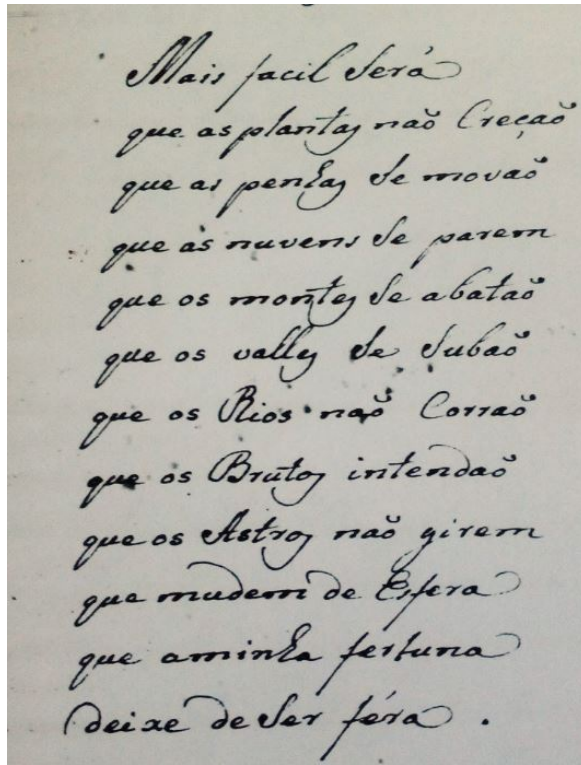 Mais facil Será
que as plantas não Creção
que as penhas se movão
que as nuvens se parem
que os montes se abatão
que os valles se subão
que os Rios não Corrão
que os Brutos intendão
que os Astros não girem
que mudem de Esfera
que a minha fortuna
deixe de Ser féra .